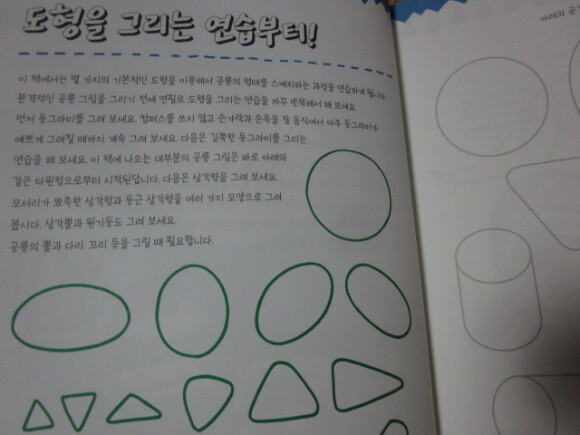 도형을 그리는 연습부터!
이 책에서는 몇 가지의 기본적인 도형을 이용해서 공룡의 형태를 스케치하는 과정을 연습하게 됩니다.
본격적인 공룡 그림을 그리기 전에 연필로 도형을 그리는 연습을 자꾸 반복해서 해 보세요.
먼저 동그라미를 그려 보세요. 컴퍼스를 쓰지 않고 손가락과 손목을 잘 움직여서 아주 동그라미가
예쁘게 그려질 때까지 계속 그려 보세요. 다음은 길쭉한 동그라미를 그리는
연습을 해 보세요. 이 책에 나오는 대부분의 공룡 그림은 바로 아래와
같은 타원형으로부터 시작된답니다. 다음은 삼각형을 그려 보세요.
모서리가 뾰족한 삼각형과 둥근 삼각형을 여러 가지 모양으로 그려
봅시다. 삼각뿔과 원기둥도 그려 보세요.
공룡의 뿔과 다리, 꼬리 등을 그릴 때 필요합니다.
아래의